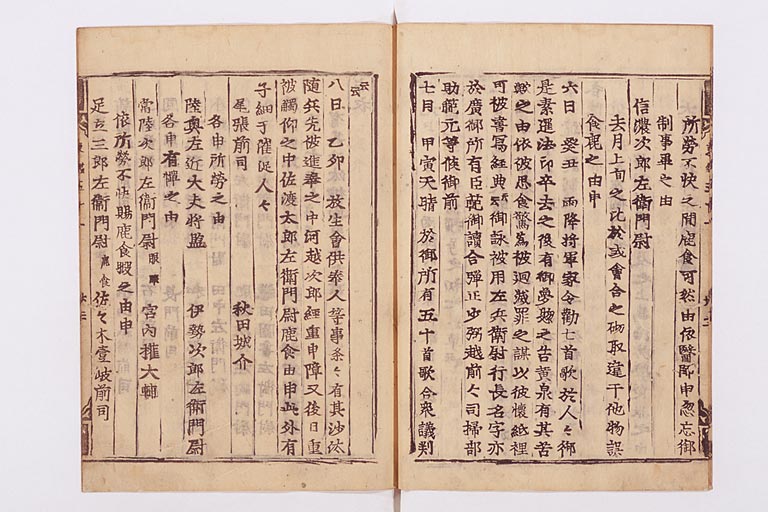 所勞不快之間鹿食可然由依醫師申忽忘御
制事畢之由
信濃次郎左衛門尉
去月上旬之比於或會合之砌取違干他物誤
食鹿之由申
六日 癸丑 雨降將軍家令勸七首歌於人々御
是素暹法印卒去之後有御夢想之告黄泉有其苦
歟之由依彼思食驚為被迴滅罪之謀以彼懷紙裡
可被書寫經典云々御詠被用左兵衛尉行長名字亦
於廣御所有臣範御讀合彈正少弼越前々司掃部
助範元等候御前
七日 甲寅天晴 於御所有五十首歌合衆議判
云々
八日 乙卯 放生會供奉人等事条々有其沙汰
随兵先被進奉之中河越次郎經重申障又後日重
被觸仰之中佐渡太郎左衛門尉鹿食由申此外有
子細于催促人々
尾張前司 秋田城介
各申所勞之由
陸奥左近大夫將監 伊勢次郎左衛門尉
各申有憚之由
常陸次郎左衛門尉 服暇 宮内權大輔
依所勞不快賜鹿食暇之由申
足立三郎左衛門尉 鹿食 佐々木壹岐前司